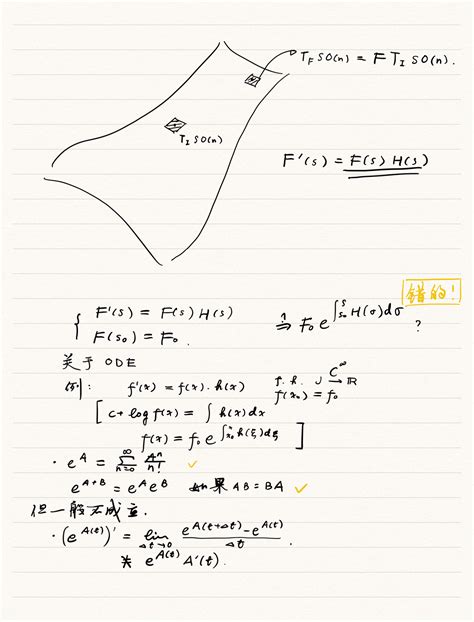 T_F SO(n) = F T_I SO(n).
T_I SO(n)
F'(s) = F(s) H(s)
错的!
{ F'(s) = F(s) H(s)
F(s₀) = F₀.
⇒ F₀ e^{∫_{s₀}^{s} H(σ)dσ} ?
关于 ODE
例: f'(x) = f(x).h(x) f. h. J →^{C^∞} ℝ
f(x₀) = f₀
[ c + log f(x) = ∫ h(x)dx
f(x) = f₀ e^{∫_{x₀}^{x} h(ξ)dξ} ]
· e^A = Σ_{n=0}^{∞} A^n/n! ✓
e^{A+B} = e^A e^B 如果 AB = BA ✓
但一般不成立.
· (e^{A(t)})' = lim_{Δt→0} (e^{A(t+Δt)} - e^{A(t)})/Δt.
≠ e^{A(t)} A'(t).